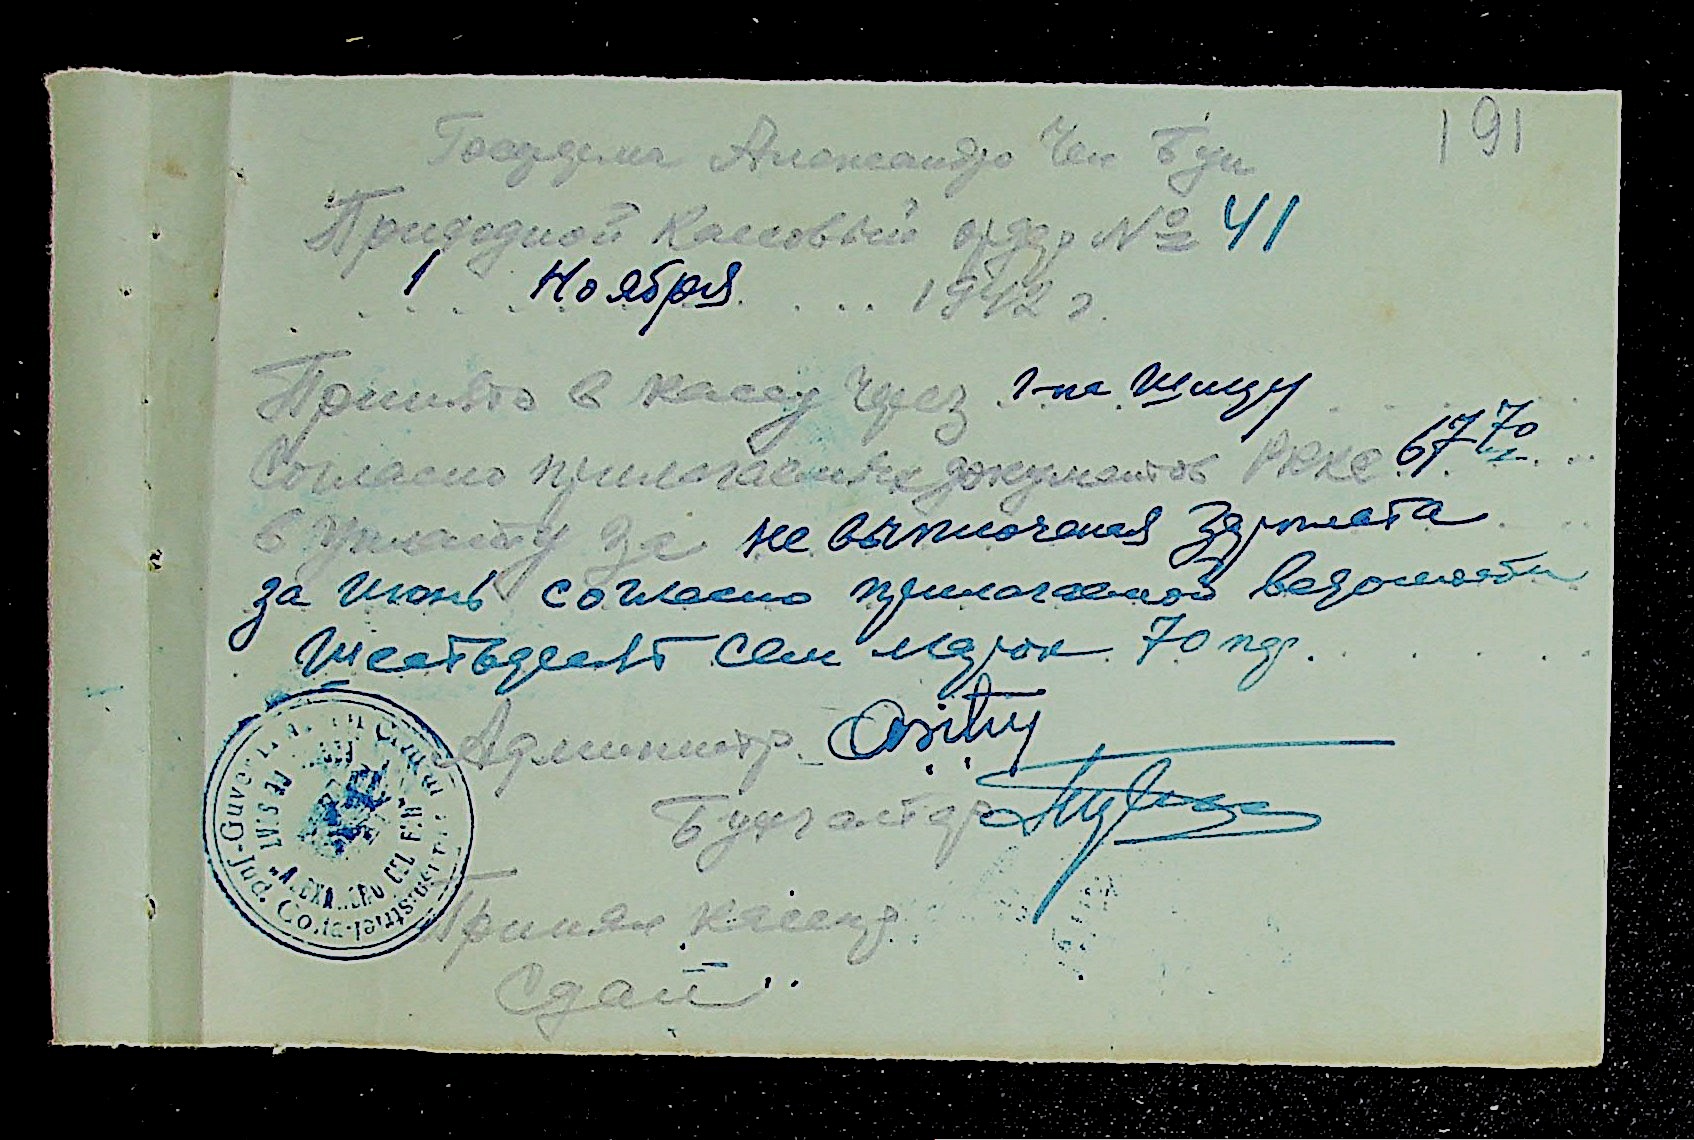 191
Госферма Александро Чел Бун
Приходной Кассовый ордер № 41
1 Ноября 1942 г.
Принято в кассу через г-на Шищу
Согласно прилогаемых документов РККС 67 70
в уплату за не выплоченая Зарплата
за июнь согласно прилогаемой ведомости
Шестьдесят сем марок 70 пф.
Администр.
Бухгалтер
Принял кассир
Сдал
Guver
Jud.
ALEXANDRU CEL BUN